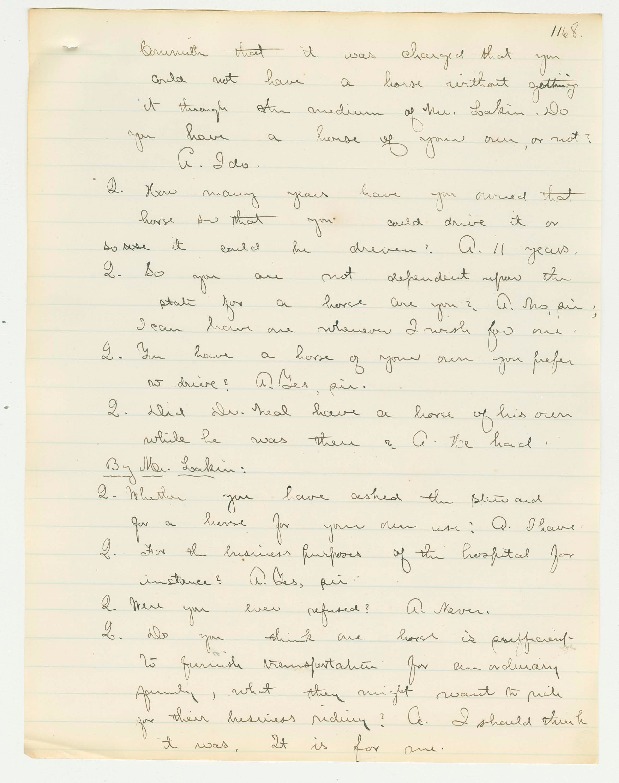 1168.
that it was charged that you
could not have a horse without getting
it through the medium of Mr. Lakin. Do
you have a horse of your own, or not?
A. I do.
Q. How many years have you owned that
horse so that you could drive it or
so it could be driven? A. 11 years.
Q. So you are not dependent upon the
state for a horse are you? A. No, sir;
I can have one whenever I wish for one.
Q. You have a horse of your own you prefer
to drive? A. Yes, sir.
Q. Did Dr. Neal have a horse of his own
while he was there? A. He had.
By Mr. Lakin:
Q. Whether you have asked the steward
for a horse for your own use? A. I have.
Q. For the business purposes of the hospital for
instance? A. Yes, sir.
Q. Were you ever refused? A. Never.
Q. Do you think one horse is sufficient
to furnish transportation for an ordinary
family, what they might want to ride
for their business riding? A. I should think
it was. It is for me.